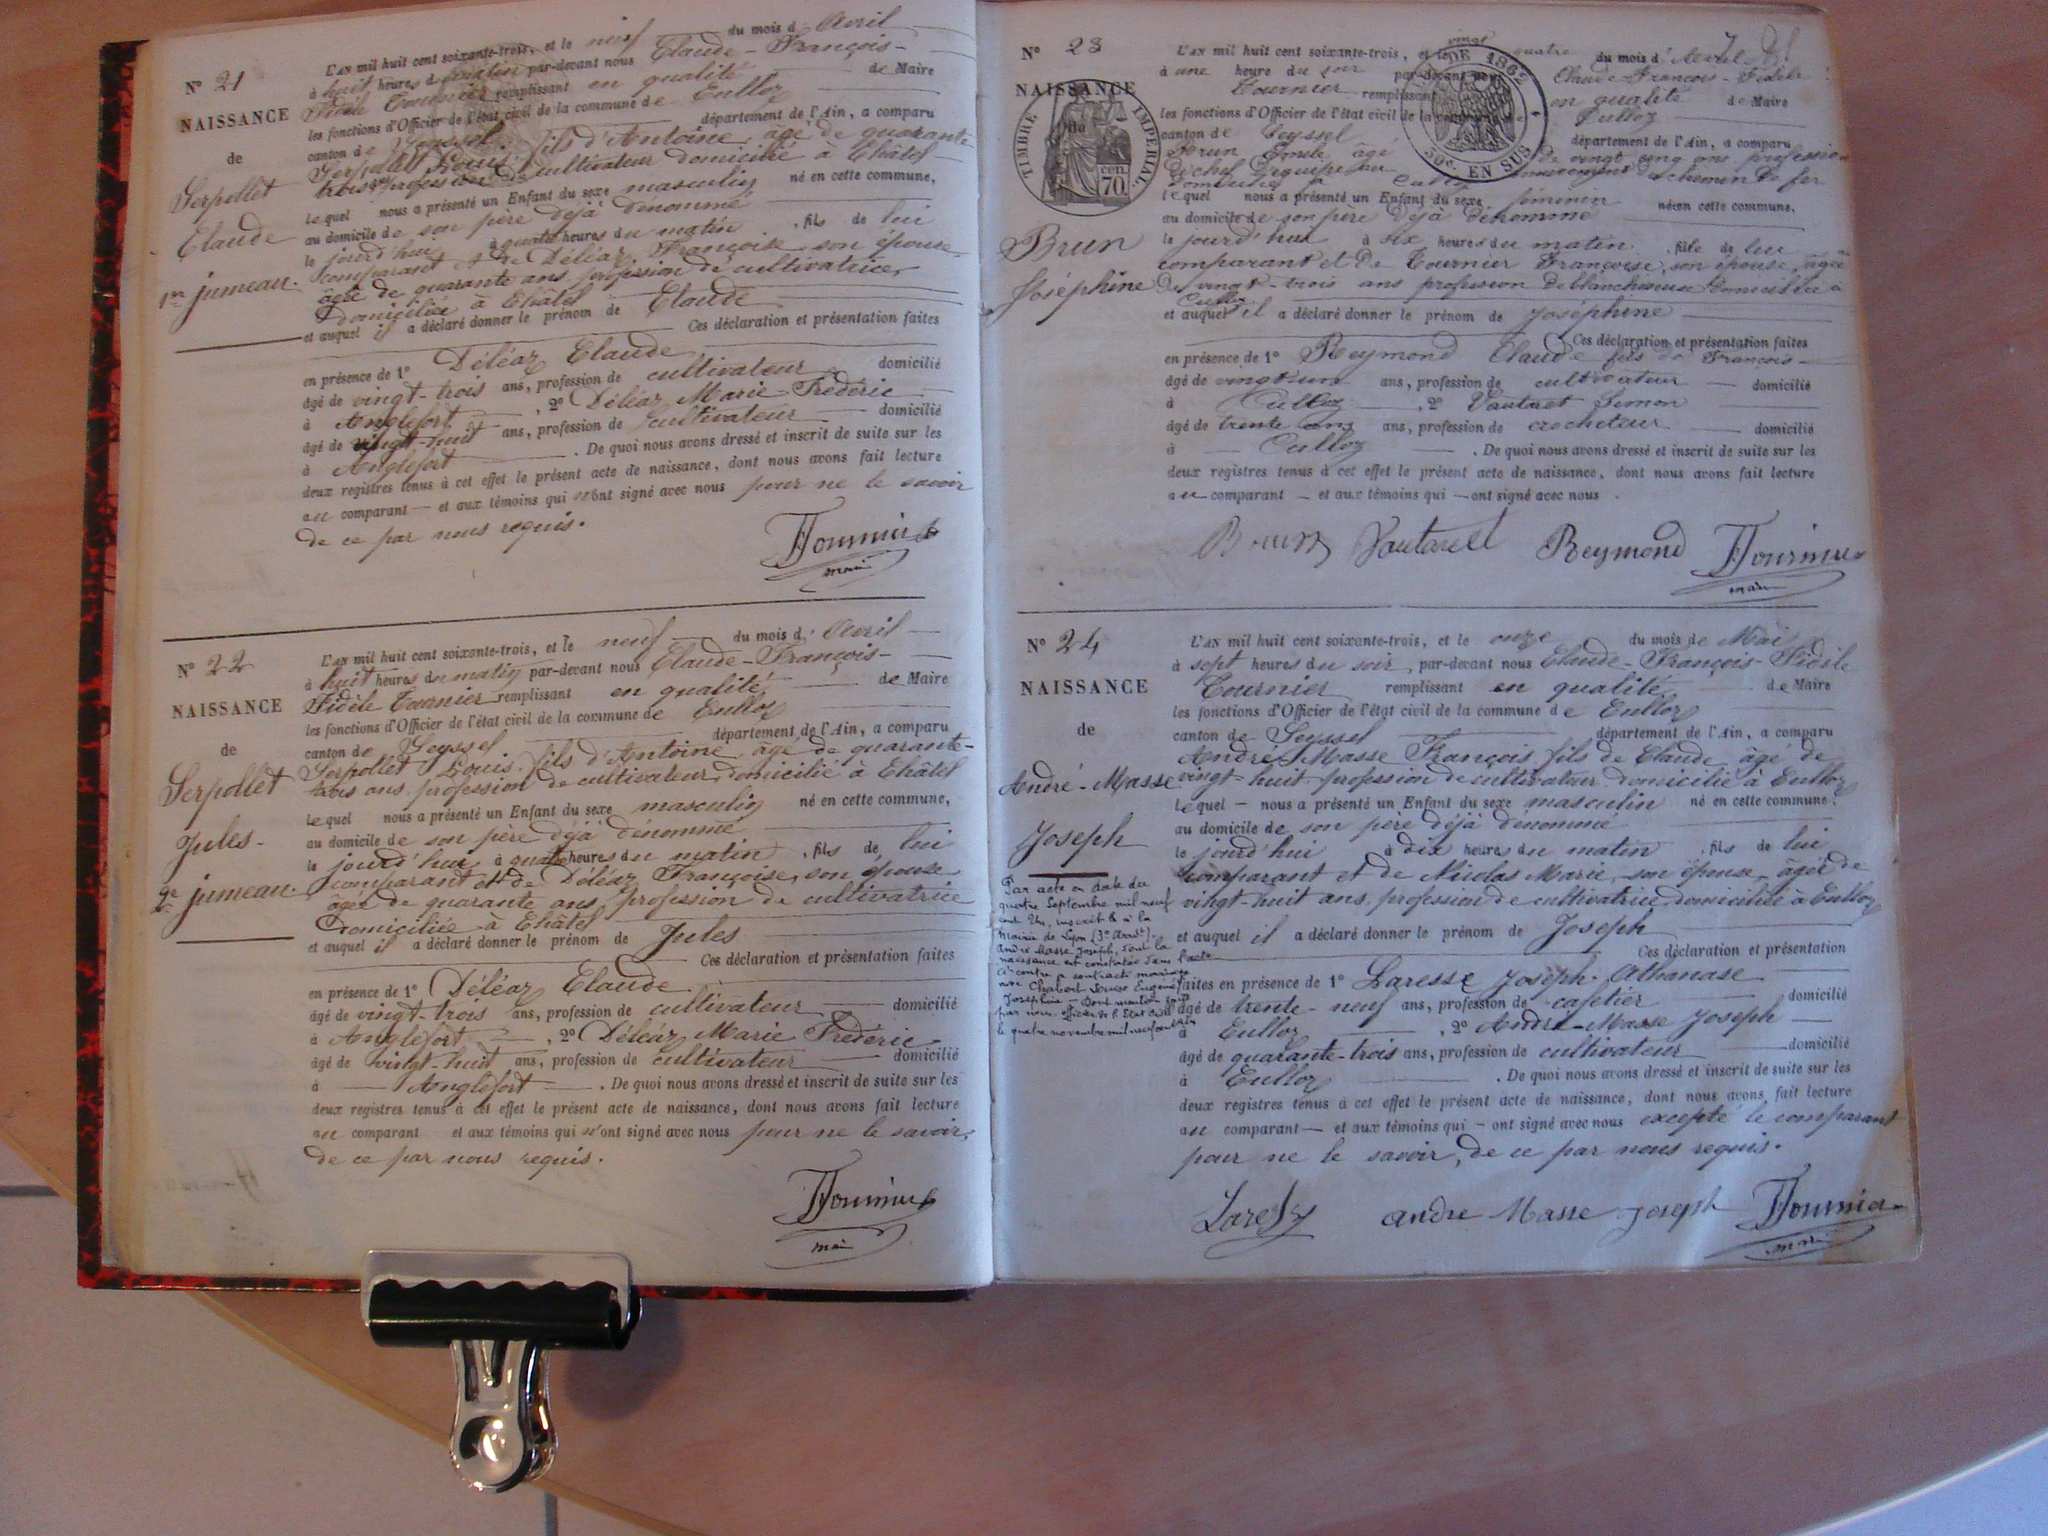 N° 21
NAISSANCE
de
Serpollet
Claude
1er jumeau.
L'AN mil huit cent soixante-trois, et le neuf du mois d'Avril
à huit heures du matin par-devant nous Claude-François-
Fidèle Tournier remplissant en qualité de Maire
les fonctions d'Officier de l'état civil de la commune de Culloz
canton de Seyssel département de l'Ain, a comparu
Serpollet Louis fils d'Antoine âgé de quarante
trois profession de cultivateur domicilié à Châtel
lequel nous a présenté un Enfant du sexe masculin né en cette commune,
au domicile de son père déjà dénommé
le jourd'hui à quatre heures du matin, fils de lui
comparant et de Déléaz Françoise son épouse
âgée de quarante ans profession de cultivatrice
domiciliée à Châtel
et auquel il a déclaré donner le prénom de Claude
Ces déclaration et présentation faites
en présence de 1° Déléaz Claude
âgé de vingt-trois ans, profession de cultivateur domicilié
à Anglefort, 2° Déléaz Marie-Frédéric
âgé de vingt-huit ans, profession de cultivateur domicilié
à Anglefort. De quoi nous avons dressé et inscrit de suite sur les
deux registres tenus à cet effet le présent acte de naissance, dont nous avons fait lecture
au comparant et aux témoins qui n'ont signé avec nous pour ne le savoir
de ce par nous requis.
FTournier
maire
N° 22
NAISSANCE
de
Serpollet
Jules-
2e jumeau.
L'AN mil huit cent soixante-trois, et le neuf du mois d'Avril
à huit heures du matin par-devant nous Claude-François-
Fidèle Tournier remplissant en qualité de Maire
les fonctions d'Officier de l'état civil de la commune de Culloz
canton de Seyssel département de l'Ain, a comparu
Serpollet Louis fils d'Antoine âgé de quarante-
trois ans profession de cultivateur domicilié à Châtel
lequel nous a présenté un Enfant du sexe masculin né en cette commune,
au domicile de son père déjà dénommé
le jourd'hui à quatre heures du matin, fils de lui
comparant et de Déléaz Françoise, son épouse
âgée de quarante ans profession de cultivatrice
domiciliée à Châtel
et auquel il a déclaré donner le prénom de Jules
Ces déclaration et présentation faites
en présence de 1° Déléaz Claude
âgé de vingt-trois ans, profession de cultivateur domicilié
à Anglefort, 2° Déléaz Marie Frédéric
âgé de vingt-huit ans, profession de cultivateur domicilié
à Anglefort. De quoi nous avons dressé et inscrit de suite sur les
deux registres tenus à cet effet le présent acte de naissance, dont nous avons fait lecture
au comparant et aux témoins qui n'ont signé avec nous pour ne le savoir,
de ce par nous requis.
FTournier
maire
N° 23
NAISSANCE
de
Brun
Joséphine
TIMBRE IMPERIAL
70 cen
DE 1862
50c. EN SUS
L'AN mil huit cent soixante-trois, et le vingt quatre du mois d'Avril
à une heure du soir par-devant nous Claude François-Fidèle
Tournier remplissant en qualité de Maire
les fonctions d'Officier de l'état civil de la commune de Culloz
canton de Seyssel département de l'Ain, a comparu
Brun âgé de vingt cinq ans profession
de chef d'équipe au chemin de fer
domicilié à Culloz
lequel nous a présenté un Enfant du sexe féminin né en cette commune,
au domicile de son père déjà dénommé
le jourd'hui à six heures du matin, fille de lui
comparant et de Tournier Françoise, son épouse, âgée
de vingt-trois ans profession de blanchisseuse domiciliée à
Culloz
et auquel il a déclaré donner le prénom de Joséphine
Ces déclaration et présentation faites
en présence de 1° Reymond Claude fils de François-
âgé de vingt un ans, profession de cultivateur domicilié
à Culloz, 2° Vautaret Simon
âgé de trente ans, profession de crocheteur domicilié
à Culloz. De quoi nous avons dressé et inscrit de suite sur les
deux registres tenus à cet effet le présent acte de naissance, dont nous avons fait lecture
au comparant et aux témoins qui ont signé avec nous.
Brun Vautaret Reymond FTournier
maire
N° 24
NAISSANCE
de
André-Masse
Joseph
Par acte en date du
quatre Septembre mil neuf
cent Un, inscrit à la
mairie de Lyon (3e Arrdt).
André Masse Joseph, dont la
naissance est constatée dans l'acte
ci-contre a contracté mariage
avec Chabert Louise Eugénie
Joséphine - Dont mention faite
par nous officier de l'Etat civil
le quatre novembre mil neuf cent Un
L'AN mil huit cent soixante-trois, et le onze du mois de Mai
à sept heures du soir, par-devant nous Claude-François-Fidèle
Tournier remplissant en qualité de Maire
les fonctions d'Officier de l'état civil de la commune de Culloz
canton de Seyssel département de l'Ain, a comparu
André-Masse François fils de Claude âgé de
vingt-huit profession de cultivateur domicilié à Culloz
lequel nous a présenté un Enfant du sexe masculin né en cette commune,
au domicile de son père déjà dénommé
le jourd'hui à dix heures du matin, fils de lui
comparant et de Nicolas Marie, son épouse, âgée de
vingt-huit ans, profession de cultivatrice domiciliée à Culloz
et auquel il a déclaré donner le prénom de Joseph
Ces déclaration et présentation
faites en présence de 1° Laresse Joseph-Athanase
âgé de trente-neuf ans, profession de cafetier domicilié
à Culloz, 2° André-Masse Joseph
âgé de quarante-trois ans, profession de cultivateur domicilié
à Culloz. De quoi nous avons dressé et inscrit de suite sur les
deux registres tenus à cet effet le présent acte de naissance, dont nous avons fait lecture
au comparant et aux témoins qui ont signé avec nous excepté le comparant
pour ne le savoir, de ce par nous requis.
andre Masse Joseph FTournier
maire